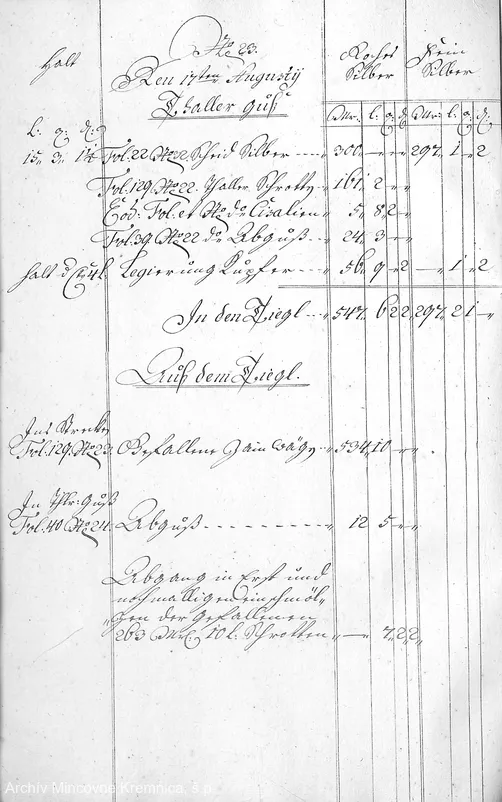 No 23.
Halt
Den 17ten Augusty
Thaller Guß
Roches Silber
Fein Silber
l: q: d:
Mr: l: q: d: Mr: l: q: d:
15, 3, 1¼ Fol. 22 No 22 Scheid Silber 300 297, 1, 2
Fol. 129 No 22. Thaller Schrotty 161, 2
Eod: Fol. et No do Cisalien 5, 8, 2
Fol. 39 No 22 do Abguß 24, 3
Halt Legierung Kupfer 56, 9, 2 1, 2
In den Tiegl 547, 6 2 2, 297, 2 1
Auß dem Tiegl.
Ins Strecken
Fol. 129 No 23. Gefallene Zain wägy 534, 10
In Thlr: Guß
Fol. 40 No 24. Abguß 12 5
Abgang in Erst und
nochmalligen einschmöl-
zen der Gefallenen
263 Mr: 10 l: Schrotten 7, 2 2,
Archív Mincovne Kremnica, š.p.